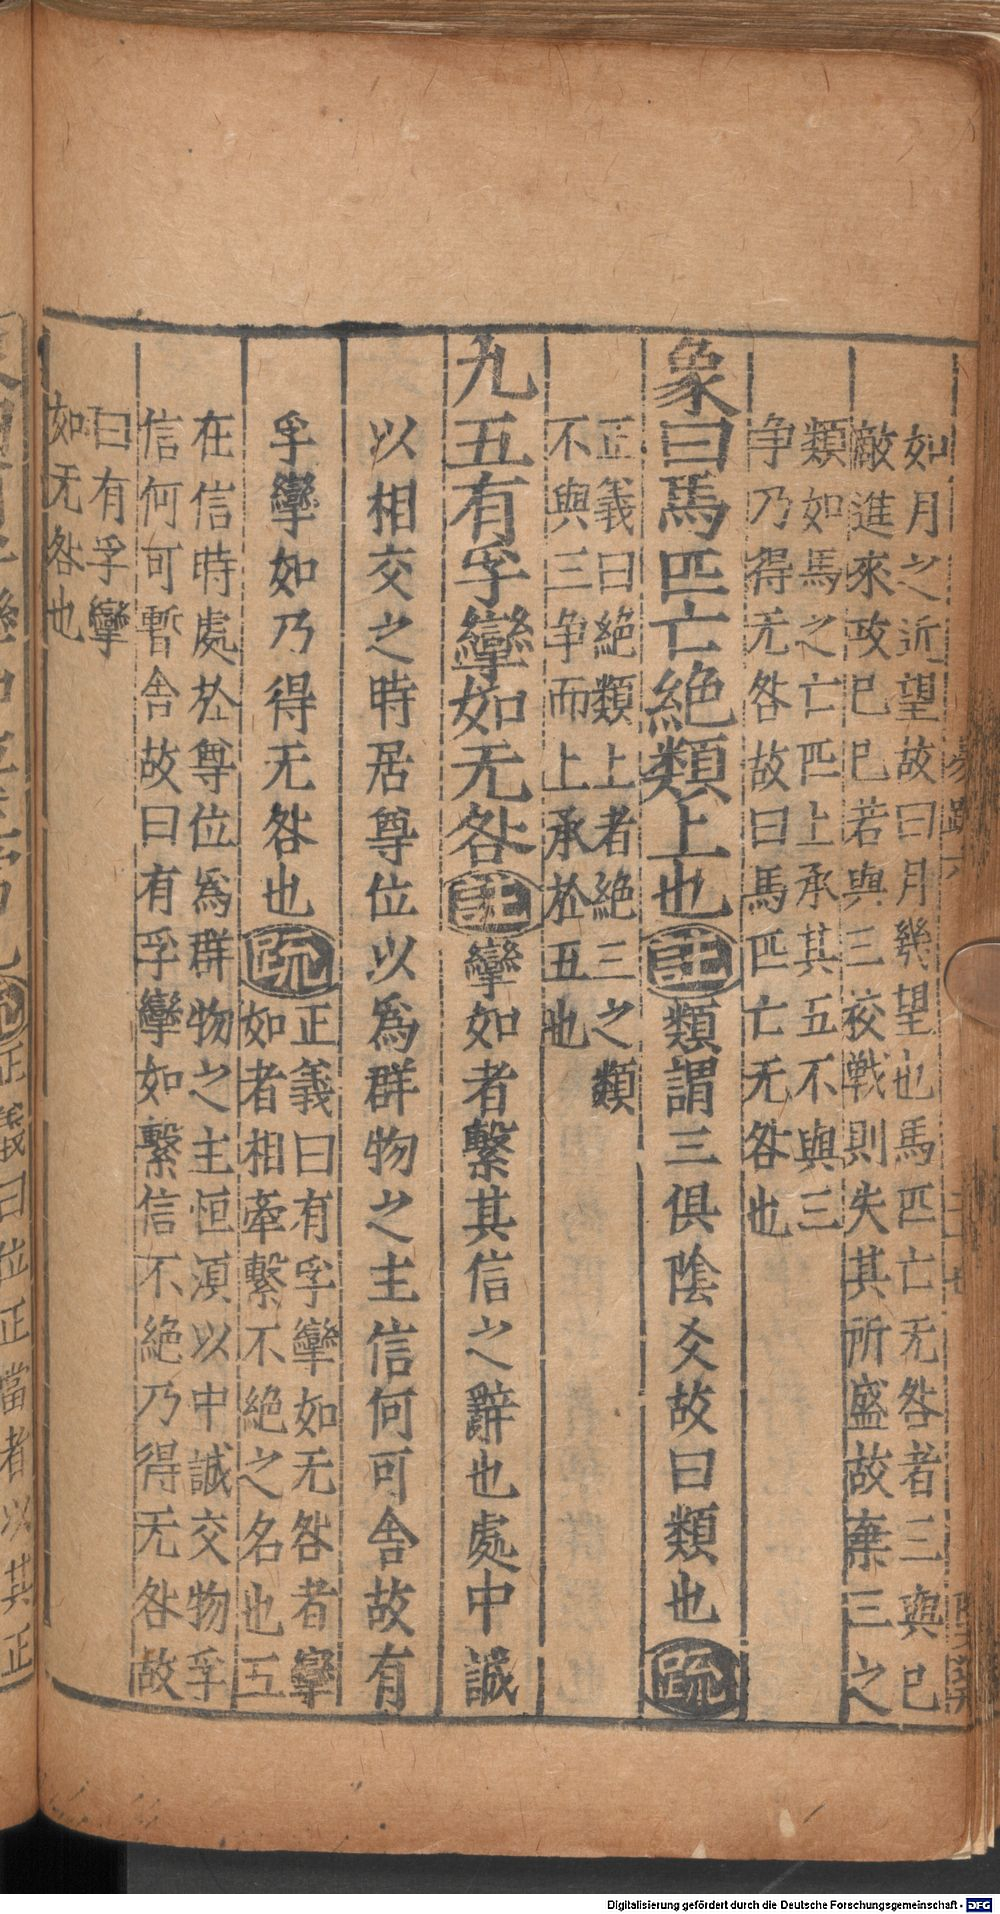 如月之近望故曰月幾望也馬匹亡无咎者三與己
敵進來攻己己若與三校戰則失其所盛故棄三之
類如馬之亡匹上承其五不與三
争乃得无咎故曰馬匹亡无咎也
象曰馬匹亡絶類上也註類謂三俱陰爻故曰類也疏
正義曰絶類上者絶三之類
不與三争而上承於五也
九五有孚攣如无咎註攣如者繫其信之辭也處中誠
以相交之時居尊位以爲群物之主信何可舍故有
孚攣如乃得无咎也疏
正義曰有孚攣如无咎者攣
如者相牽繫不絶之名也五
在信時處於尊位爲群物之主恒湏以中誠交物孚
信何可暫舍故曰有孚攣如繫信不絶乃得无咎故
曰有孚攣
如无咎也
正義曰位正當者以其正
Digitalisierung gefördert durch die Deutsche Forschungsgemeinschaft - DFG